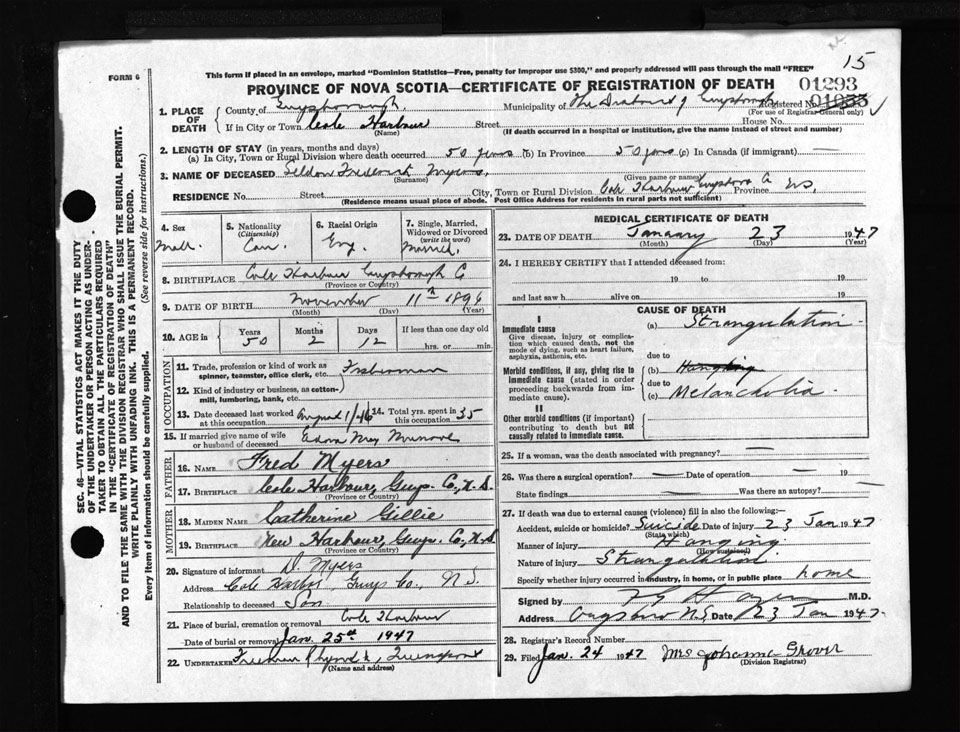 15
FORM 6
This form if placed in an envelope, marked "Dominion Statistics—Free, penalty for improper use $300," and properly addressed will pass through the mail "FREE"
PROVINCE OF NOVA SCOTIA—CERTIFICATE OF REGISTRATION OF DEATH
01293
1. PLACE OF DEATH
County of Guysborough Municipality of The District of Guysborough Registered No. 01033
(For use of Registrar General only)
If in City or Town Cole Harbour Street House No.
(Name) (If death occurred in a hospital or institution, give the name instead of street and number)
2. LENGTH OF STAY (in years, months and days)
(a) In City, Town or Rural Division where death occurred 50 years (b) In Province 50 yrs (c) In Canada (if immigrant) —
3. NAME OF DECEASED Seldon Frederick Myers
(Surname) (Given name or names)
RESIDENCE No. Street City, Town or Rural Division Cole Harbour, Guysboro Co Province N.S.
(Residence means usual place of abode. Post Office Address for residents in rural parts not sufficient)
SEC. 46—VITAL STATISTICS ACT MAKES IT THE DUTY
OF THE UNDERTAKER OR PERSON ACTING AS UNDER-
TAKER TO OBTAIN ALL THE PARTICULARS REQUIRED
IN THE "CERTIFICATE OF REGISTRATION OF DEATH"
AND TO FILE THE SAME WITH THE DIVISION REGISTRAR WHO SHALL ISSUE THE BURIAL PERMIT.
WRITE PLAINLY WITH UNFADING INK. THIS IS A PERMANENT RECORD.
Every item of information should be carefully supplied. (See reverse side for instructions.)
4. Sex
Male
5. Nationality
(Citizenship)
Can.
6. Racial Origin
Eng.
7. Single, Married, Widowed or Divorced
(write the word)
Married
8. BIRTHPLACE Cole Harbour Guysborough Co
(Province or Country)
9. DATE OF BIRTH November 11th 1896
(Month) (Day) (Year)
10. AGE in Years Months Days If less than one day old
50 2 12 hrs. or min.
OCCUPATION
11. Trade, profession or kind of work as spinner, teamster, office clerk, etc. Fisherman
12. Kind of industry or business, as cotton-mill, lumbering, bank, etc.
13. Date deceased last worked at this occupation August 1/46 14. Total yrs. spent in this occupation 35
15. If married give name of wife or husband of deceased Edna May
FATHER
16. NAME Fred Myers
17. BIRTHPLACE Cole Harbour, Guys. Co., N.S.
(Province or Country)
MOTHER
18. MAIDEN NAME Catherine Gillie
19. BIRTHPLACE New Harbour, Guys. Co., N.S.
(Province or Country)
20. Signature of informant D. Myers
Address Cole Harbor, Guys Co., N.S.
Relationship to deceased Son
21. Place of burial, cremation or removal Cole Harbour
Date of burial or removal Jan. 25th 1947
22. UNDERTAKER Freeman
(Name and address)
MEDICAL CERTIFICATE OF DEATH
23. DATE OF DEATH January 23 1947
(Month) (Day) (Year)
24. I HEREBY CERTIFY that I attended deceased from:
19 to 19
and last saw h alive on 19
CAUSE OF DEATH
I
Immediate cause
Give disease, injury or complication which caused death, not the mode of dying, such as heart failure, asphyxia, asthenia, etc.
(a) Strangulation
due to
Morbid conditions, if any, giving rise to immediate cause (stated in order proceeding backwards from immediate cause).
(b) Hanging
due to
(c) Melancholia
II
Other morbid conditions (if important) contributing to death but not causally related to immediate cause.
25. If a woman, was the death associated with pregnancy? —
26. Was there a surgical operation? — Date of operation — 19
State findings Was there an autopsy? —
27. If death was due to external causes (violence) fill in also the following:—
Accident, suicide or homicide? Suicide Date of injury 23 Jan 1947
(State which)
Manner of injury Hanging
(How sustained)
Nature of injury Strangulation
Specify whether injury occurred in industry, in home, or in public place home
Signed by M.D.
Address N.S. Date 23 Jan 1947
28. Registrar's Record Number
29. Filed Jan. 24 1947 Mrs Johanna Grover
(Division Registrar)